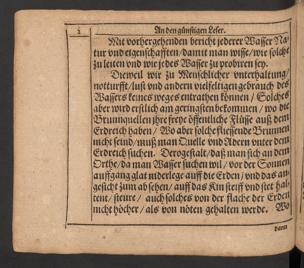 An den günstigen Leser.
Mit vorhergehenden bericht jederer Wasser Na-
tur vnd eigenschafften / damit man wisse / wie solche
zu leiten vnd wie jedes Wasser zu probiren sey.
Dieweil wir zu Menschlicher vnterhaltung /
notturfft / lust vnd andern vielfeltigen gebrauch des
Wassers keines weges entrathen können / Solches
aber wird erstlich am geringsten bekommen / wo die
Brunnquellen ihre freye öffentliche Flüsse auß dem
Erdreich haben / Wo aber solche fliessende Brunnen
nicht seind / muß man Quelle vnd Adern vnter dem
Erdreich suchen. Derogestalt / daß man sich an dem
Orthe / da man Wasser suchen wil / vor der Sonnen
auffgang glat niderlege auff die Erden / vnd das an-
gesicht zum absehen / auff das Kin steiff vnd stet hal-
tent / steure / auch solches von der flache der Erden
nicht höcher / als von nöten gehalten werde. Wo
daran